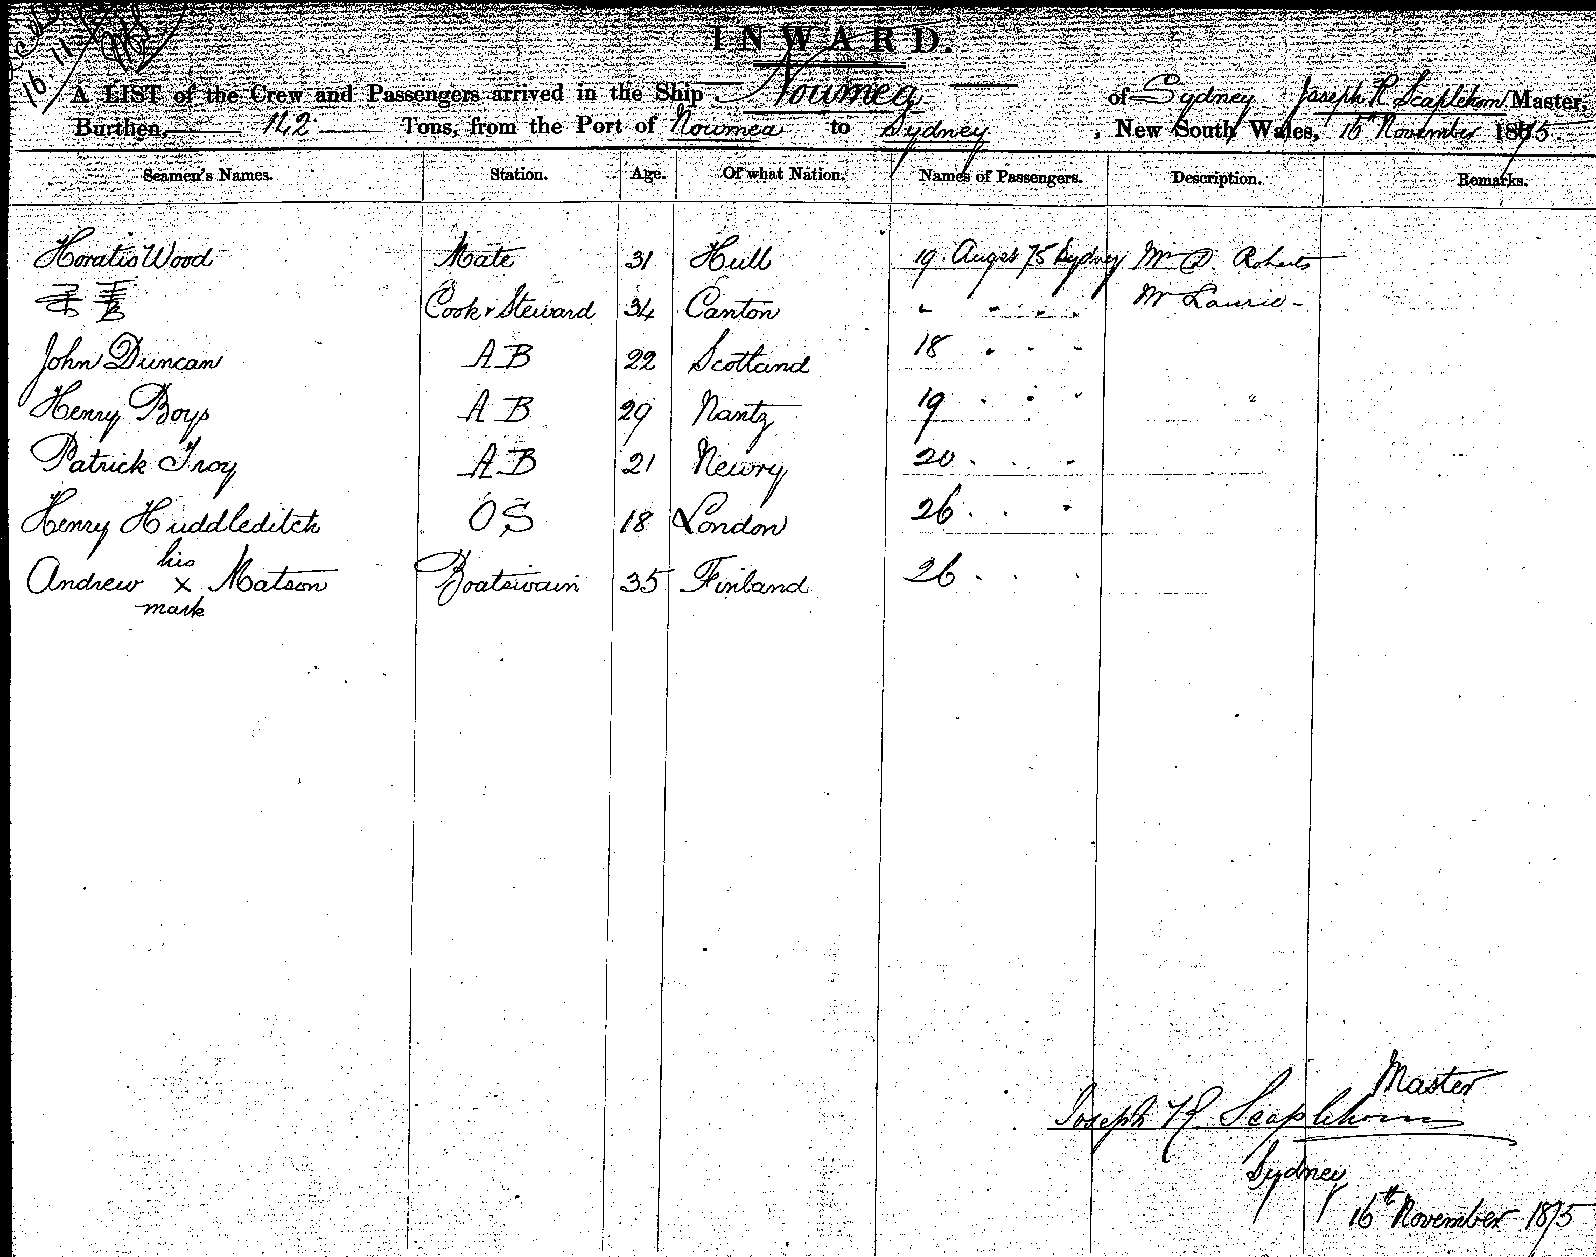 16.11
INWARD.
A LIST of the Crew and Passengers arrived in the Ship Noumea of Sydney Joseph R Scaplehorn Master,
Burthen, 142 Tons, from the Port of Noumea to Sydney, New South Wales, 16th November 1875.
Seamen's Names. Station. Age. Of what Nation. Names of Passengers. Description. Remarks.
Horatio Wood Mate 31 Hull 19. Augst 75 Sydney Mr D. Roberts
Cook & Steward 34 Canton " " " " Mr Laurie -
John Duncan A B 22 Scotland 18 " " "
Henry Boys A B 29 Nantz 19 " " " "
Patrick Troy A B 21 Newry 20 " " "
Henry Huddleditch O S 18 London 26 " " "
his
Andrew x Matson Boatswain 35 Finland 26 " " "
mark
Master
Joseph R. Scaplehorn
Sydney
16th November 1875